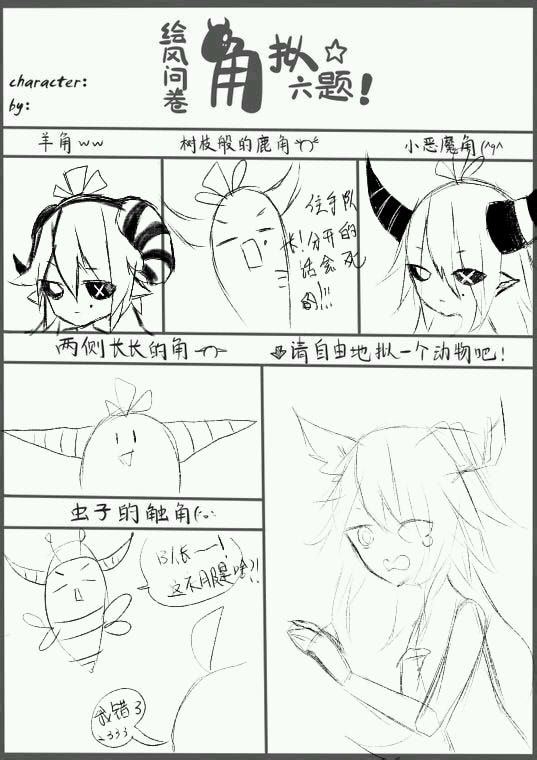 绘风问卷
角拟☆
六题!
character:
by:
羊角ww
树枝般的鹿角
小恶魔角
住手队
长!分开的
话会死
的!!!
两侧长长的角
请自由地拟一个动物吧!
虫子的触角
队长~!
这不月是啥?!
我错了
2333